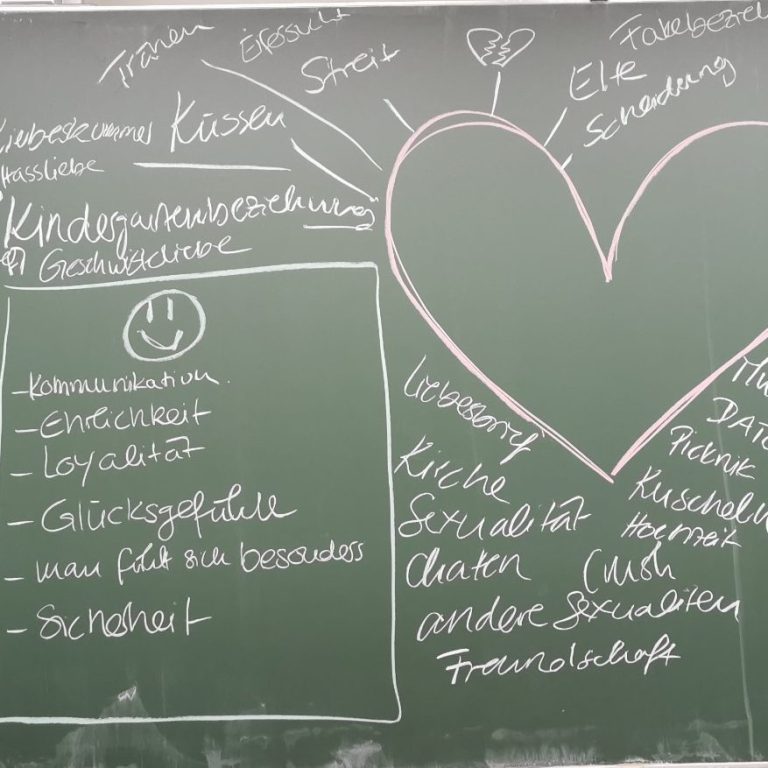 Tränen
Eifersucht
Streit
Fakebezieh
Elte
Scheidung
Liebeskummer
Küssen
Hassliebe
Kindergartenbeziehung
Geschwisterliebe
- Kommunikation.
- Ehrlichkeit
- Loyalität
- Glücksgefühle
- man fühlt sich besonders
- Sicherheit
Liebesbrief
Kirche
Sexualität
chaten
Crush
andere Sexualiten
Freundschaft
DATE
Picknik
Kuscheln
Hochzeit